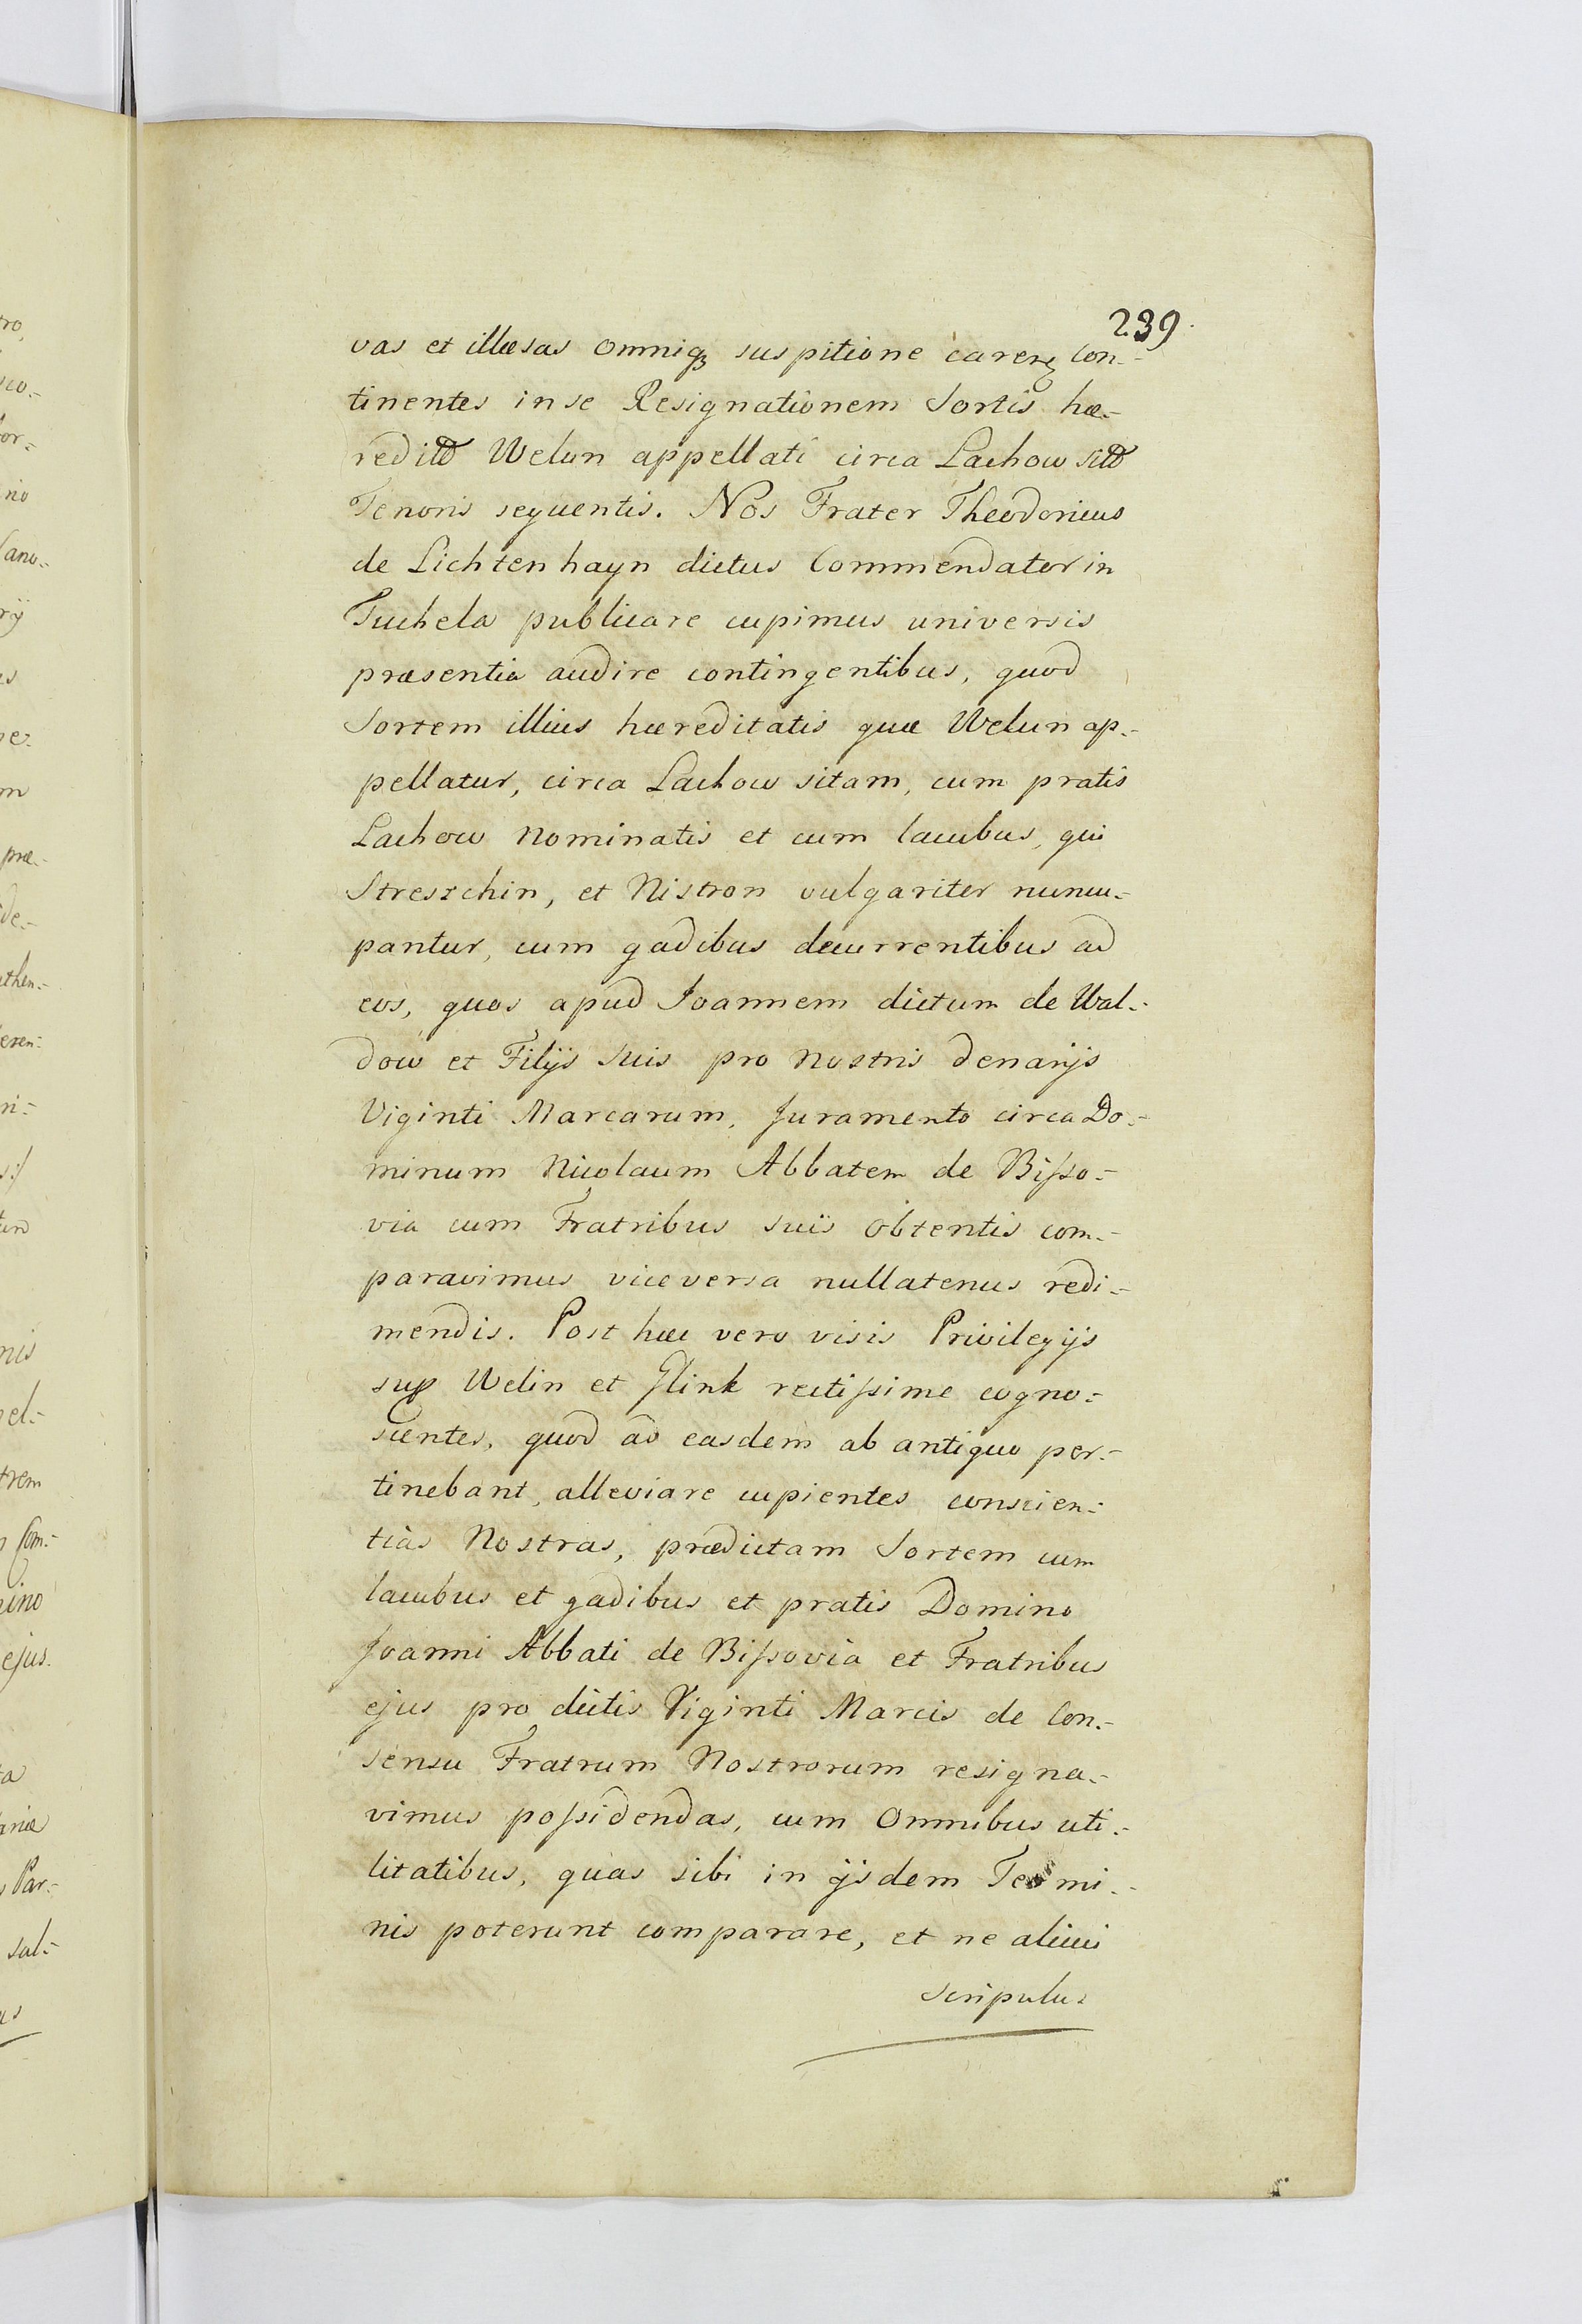 239.
vas et illæsas omniqȝ suspitione carenȝ Con-
tinentes in se Resignationem Sortis hæ-
redittis Welun appellati circa Lachow sittæ
Tenoris sequentis. Nos Frater Theodoricus
de Lichtenhayn dictus Commendator in
Tuchela publicare cupimus universis
præsentia audire contingentibus, quod
Sortem illius hæreditatis quæ Welun ap-
pellatur, circa Lachow sitam, cum pratis
Lachow nominatis et cum lacubus, qui
Streszchin, et Nistron vulgariter nuncu-
pantur, cum gadibus decurrentibus ad
eos, quos apud Joannem dictum de Wal-
dow et Filijs suis pro nostris denarijs
Viginti Marcarum, Juramento circa Do-
minum Nicolaum Abbatem de Bisso-
via cum Fratribus suis obtentis com-
paravimus vice versa nullatenus redi-
mendis. Post hæc vero visis Privilegijs
sup Welin et Glink rectissime cogno-
scentes, quod ad easdem ab antiquo per-
tinebant, alleviare cupientes conscien-
tias Nostras, prædictam Sortem cum
lacubus et gadibus et pratis Domino
Joanni Abbati de Bissovia et Fratribus
ejus pro dictis Viginti Marcis de Con-
sensu Fratrum Nostrorum resigna-
vimus possidendas, cum Omnibus uti-
litatibus, quas sibi in ijsdem Termi-
nis poterunt comparare, et ne alicui
scripulus